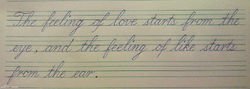 The feeling of love starts from the
eye, and the feeling of like starts
from the ear.